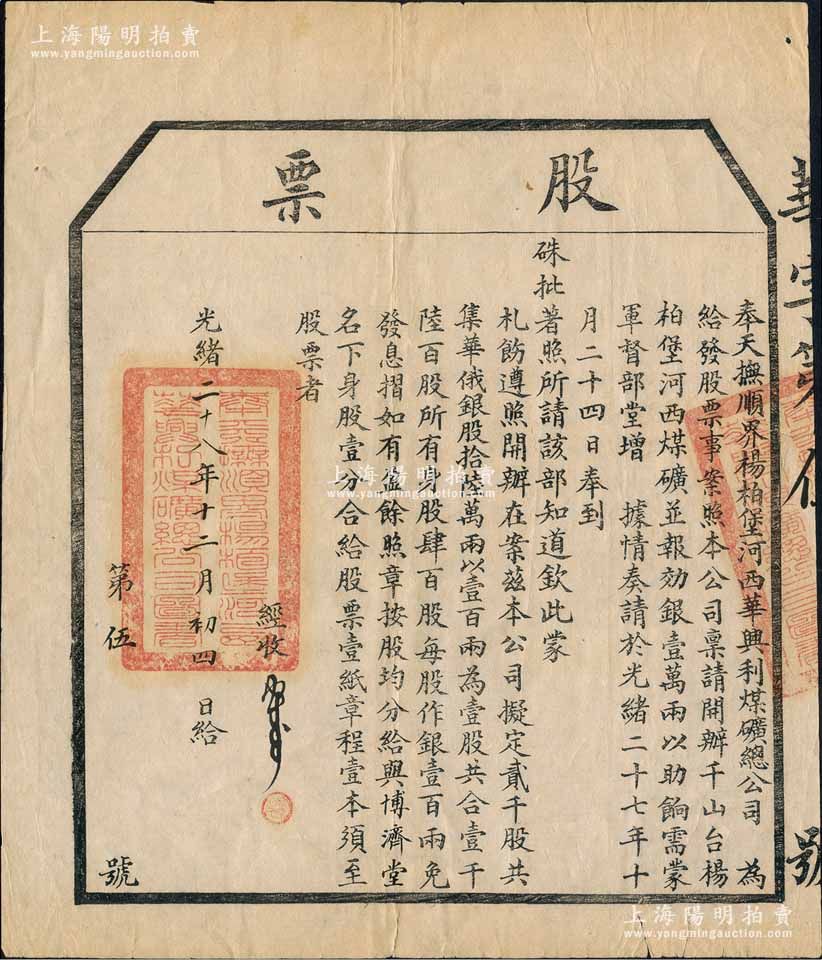 上海陽明拍賣
www.yangmingauction.com
股票
奉天撫順界楊柏堡河西華興利煤礦總公司 為
給發股票事案照本公司禀請開辦千山台楊
柏堡河西煤礦並報効銀壹萬兩以助餉需蒙
軍督部堂增 據情奏請於光緒二十七年十
月二十四日奉到
硃批著照所請該部知道欽此蒙
札飭遵照開辦在案茲本公司擬定貳千股共
集華俄銀股拾陸萬兩以壹百兩為壹股共合壹千
陸百股所有身股肆百股每股作銀壹百兩免
發息摺如有盈餘照章按股均分給與博濟堂
名下身股壹分合給股票壹紙章程壹本須至
股票者
經收
光緒二十八年十二月初四日給
第伍 號
華字第伍 號
上海陽明拍賣
www.yangmingauction.com
上海陽明拍賣
www.yangmingauction.com